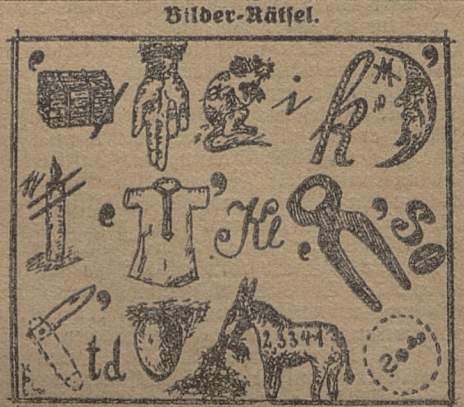 Bilder-Rätsel.
' / i k '
e ' Kl e ' So
' td 2 3 3 4 1